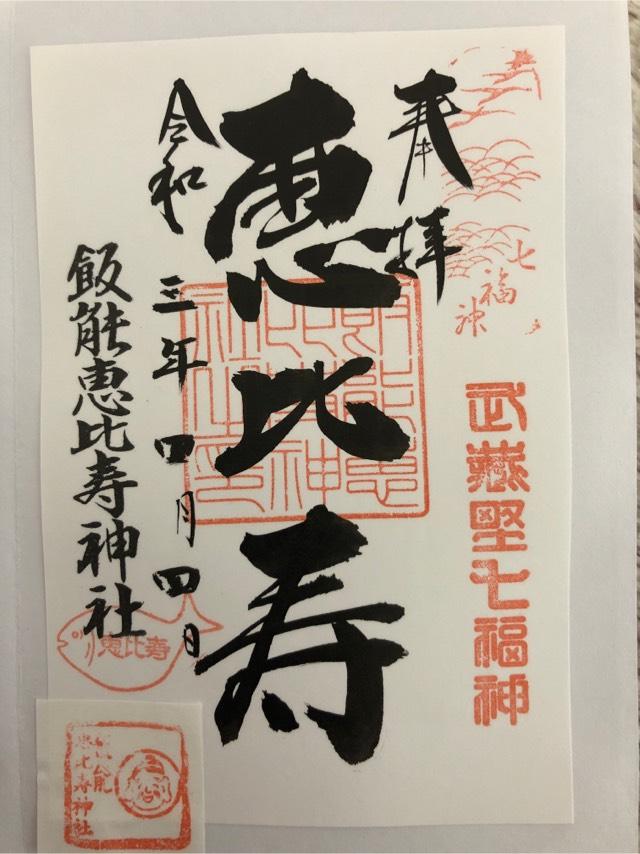 七福神
武蔵野七福神
奉拝
恵比寿
飯能恵比寿神社之印
令和三年四月四日
飯能恵比寿神社
恵比寿
飯能
恵比寿神社